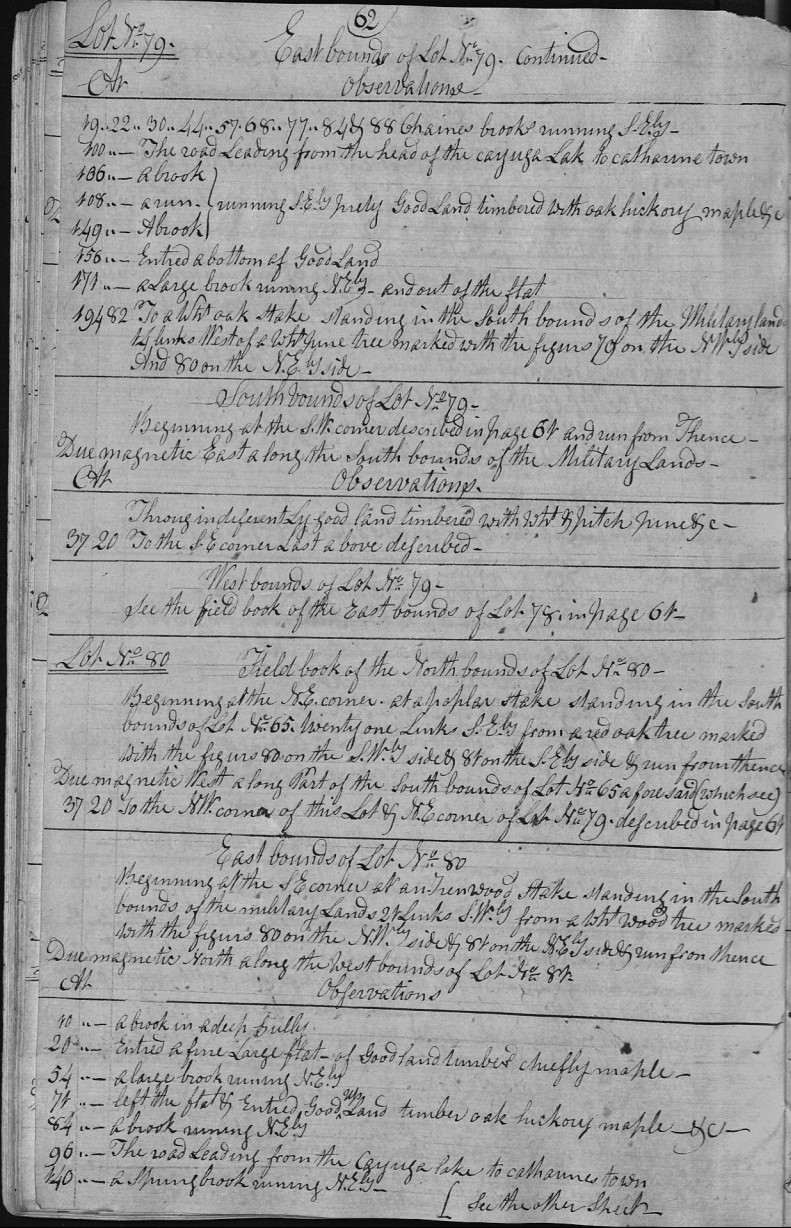 62
Lot No. 79. East bounds of Lot No. 79. Continued-
At Observations-
19 .. 22 .. 30 .. 44 .. 57. 68 .. 77 .. 84 & 88 Chaines brooks running S.Ely-
100 .. — The road Leading from the head of the cayuga Lak to catharine town
106 .. — a brook
108 .. — a run - running S.Ely prety Good Land timbered with oak hickory maple &c
149 .. — A brook
156 .. — Entred a bottom of Good Land
171 .. — a Large brook runing N.Ely - and out of the flat
194 82 To a Wht oak Stake standing in the South bounds of the Military lands
14 links West of a Wht pine tree marked with the figurs 79 on the N Wly side
And 80 on the N.Ely side -
South bounds of Lot No. 79-
Beginning at the S.W. corner described in page 61 and run from Thence -
Due magnetic East along the South bounds of the Military Lands -
At Observations.
Throug indeferently good land timbered with Wht & pitch pine &c -
37 20 To the S.E corner Last above described -
West bounds of Lot No. 79-
See the field book of the East bounds of Lot 78. in page 61-
Lot No. 80 Field book of the North bounds of Lot No. 80-
Beginning at the N.E. corner. at a poplar Stake standing in the South
bounds of Lot No. 65. twenty one Links S.Ely from a red oak tree marked
with the figurs 80 on the S.Wly side & 81 on the S.Ely side & run from thence
Due magnetic West along Part of the South bounds of Lot No. 65 afore said (which see)
37 20 To the N.W. corner of this Lot & N.E corner of Lot No. 79. described in page 61
East bounds of Lot No. 80
Beginning at the S E corner at an Irenwood Stake standing in the South
bounds of the military Lands 21 Links S.Wly from a Wht Wood tree marked
with the figurs 80 on the N.Wly side & 81 on the N.Ely side & run from thence
Due magnetic North along the West bounds of Lot No. 81-
At Observations
10 .. — a brook in a deep Gully.
20 .. — Entred a fine Large flat - of Good land timberd chiefly maple -
54 .. — a large brook runing N.Ely
71 .. — left the flat & Entred Good up Land timber oak hickory maple — &c —
84 .. — a brook runing N.Ely
96 .. — The road Leading from the Cayuga lake to catharines town
140 .. — a Spring brook runing N.Ely -
See the other Sheet -